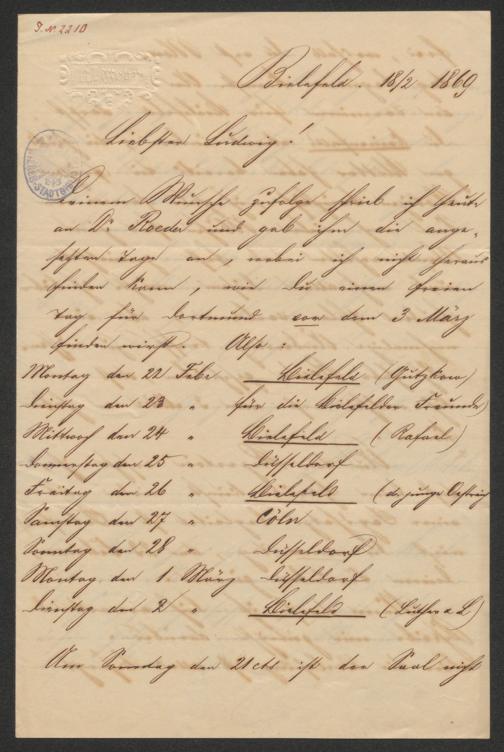 I. N. 2210
Bielefeld. 18/2 1869
Liebster Ludwig!
Deinem Wunsche zufolge schrieb ich heute
an Dr Roeder und gab ihm die ange-
setzten Tage an, wobei ich nicht heraus
finden kann, wie Du einen freien
Tag für Dortmund vor dem 3 März
finden wirst. Also:
Montag den 22 Febr Bielefeld (Gutzkow)
Dienstag den 23 " für die Bielefelder Freunde)
Mittwoch den 24 " Bielefeld (Rafael)
Donnerstag den 25 " Düsseldorf
Freitag den 26 " Bielefeld (d. junge Oestreich
Samstag den 27 " Cöln
Sonntag den 28 " Düsseldorf
Montag den 1. März Düsseldorf
Dienstag den 2 " Bielefeld (Luther a L)
Am Sonntag den 21 cts ist der Saal nicht